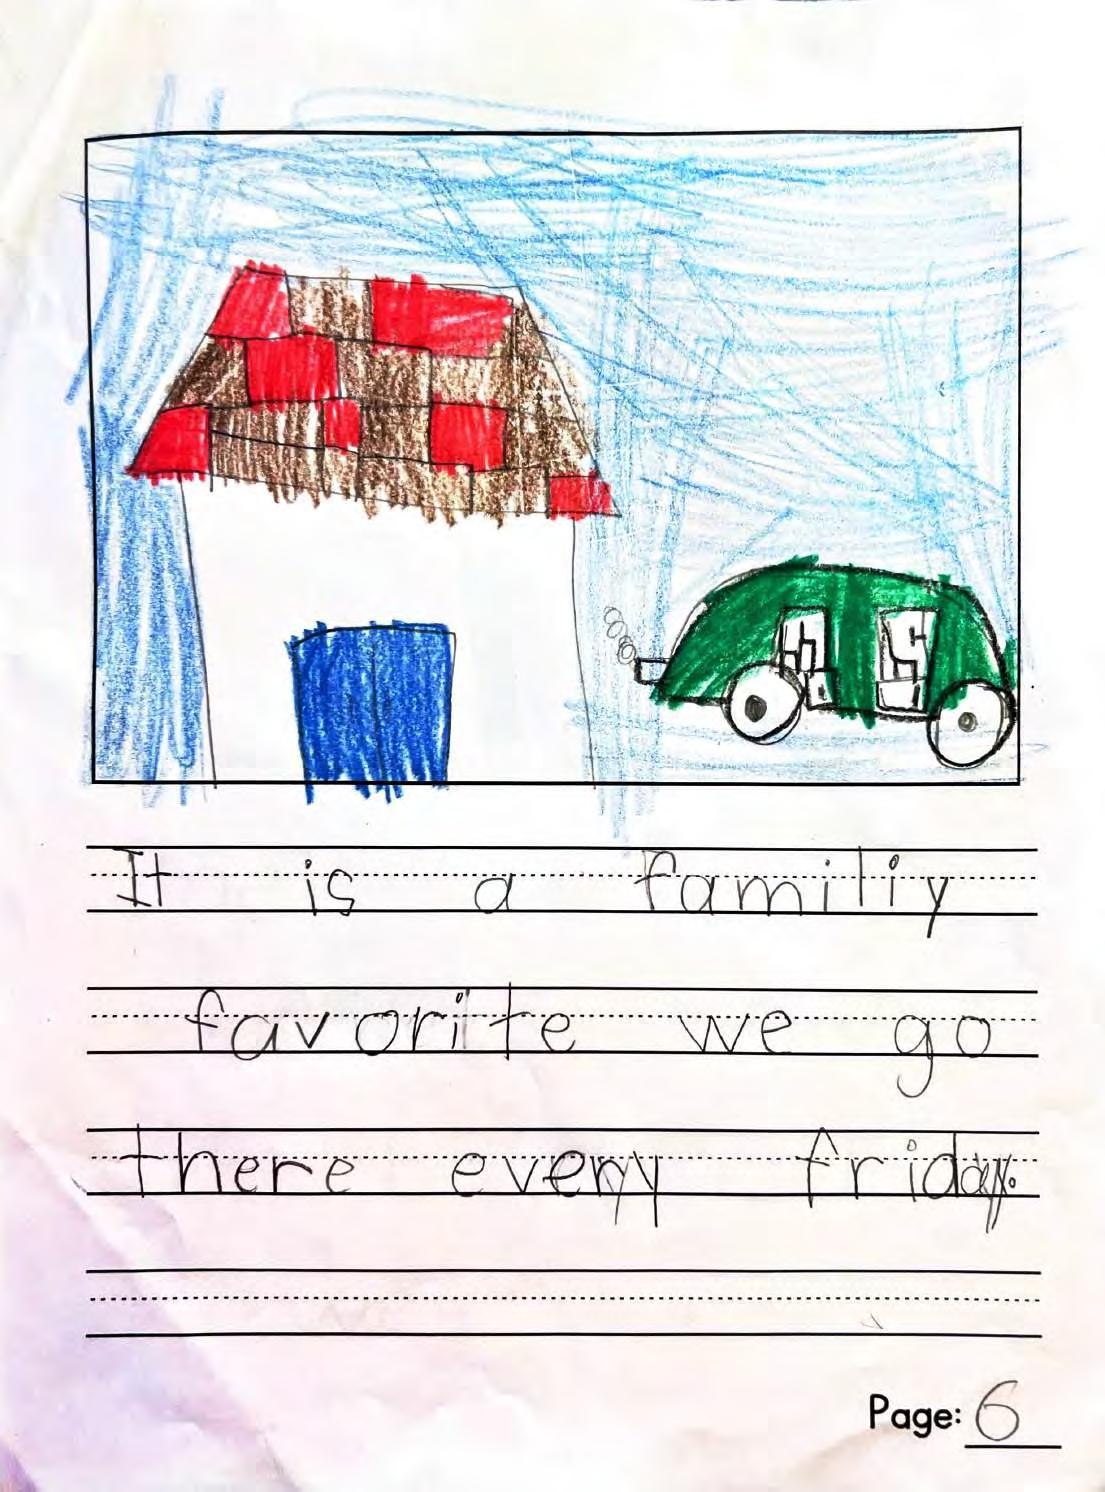 It is a familiy
favorite we go
there every friday.
Page: 6